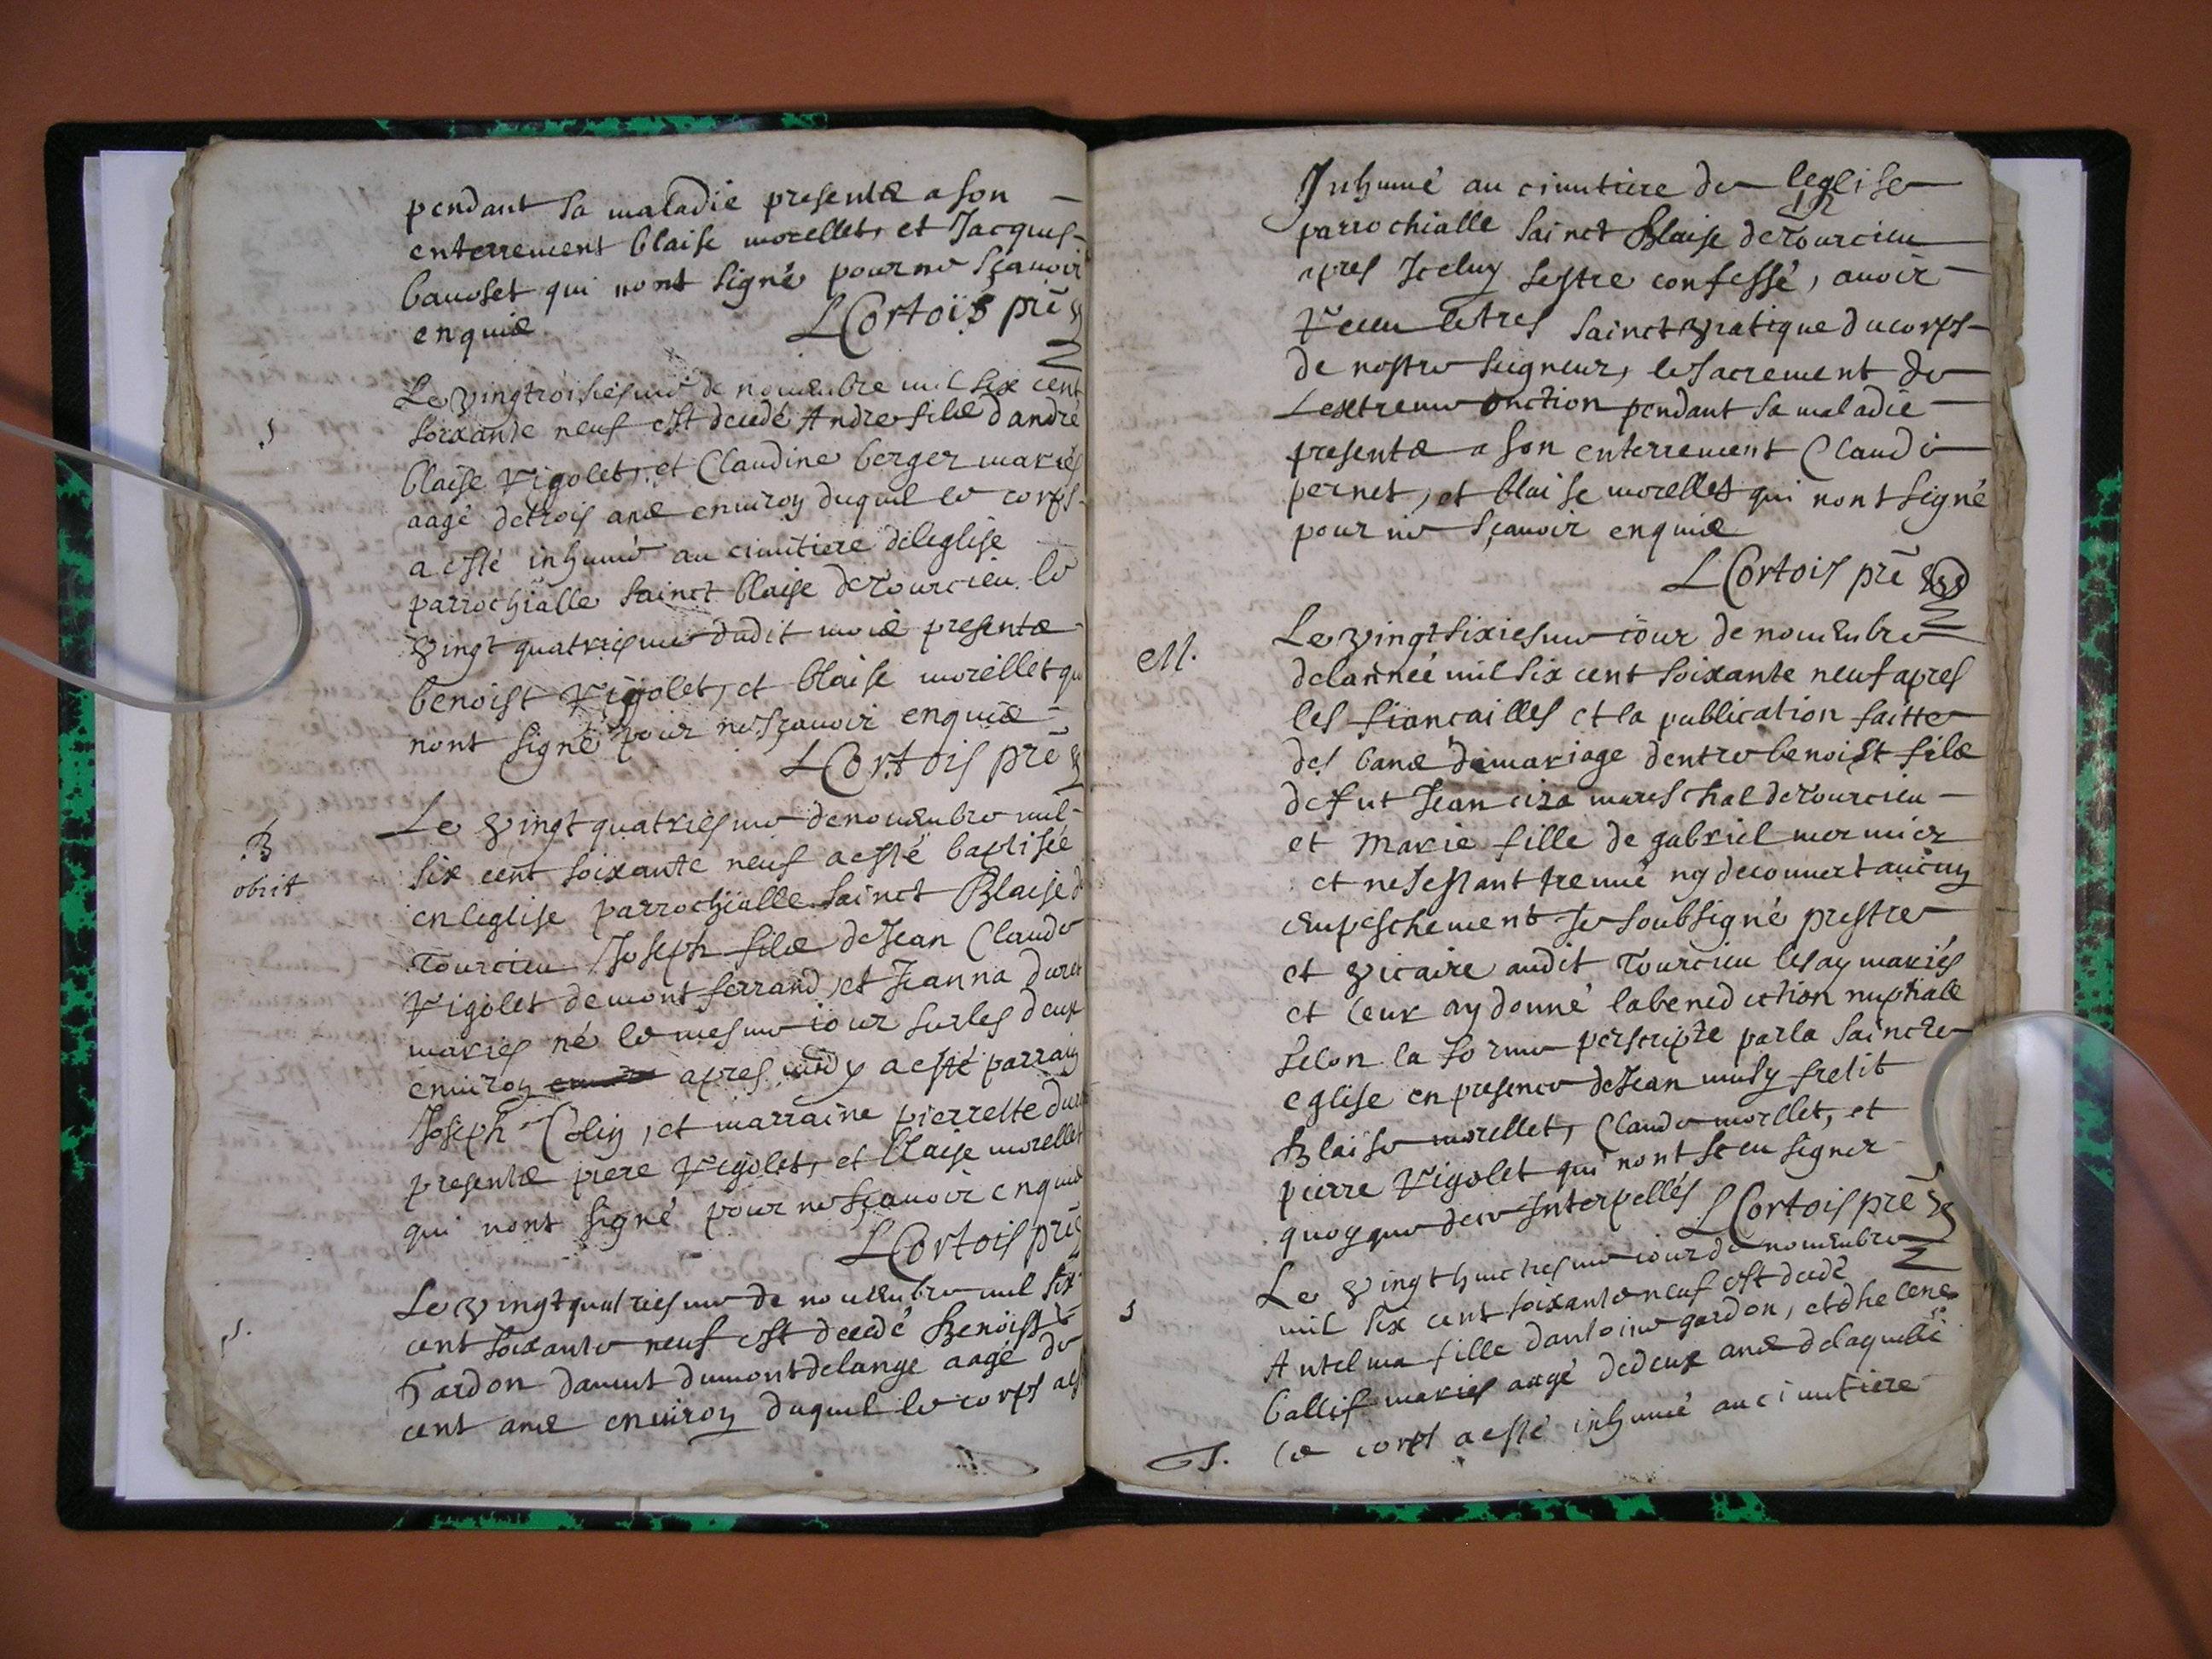 pendant sa maladie presentz a son
enterrement blaise morellet, et Jacques
bauoset qui nont signé pour ne sçauoir
enquis LCortois prē
S
Le vingtroisiesme de nouembre mil six cent
soixante neuf est decedé Andre filz d'andré
blaise Vigolet, et Claudine berger mariés
aagé de trois ans enuiron duquel le corps
a esté inhumé au cimitiere de leglise
parrochialle sainct blaise de Tourcieu le
vingt quatriesme dudit mois presentz
benoist Vigolet, et blaise morellet qui
nont signé pour ne sçauoir enquis
LCortois prē
B
obiit
Le vingt quatriesme de nouembre mil
six cent soixante neuf a esté baptisée
en leglise parrochialle sainct Blaise de
Tourcieu Joseph filz de Jean Claude
Vigolet de mont ferrand, et Jeanna
mariés né le mesme iour sur les deux
enuiron apres midy a esté parrain
Joseph Colin, et marraine pierrette
presentz piere Vigolet, et blaise morellet
qui nont signé pour ne sçauoir enquis
LCortois prē
S.
Le vingt quatriesme de nouembre mil six
cent soixante neuf est decedé Benoist
dumont delange aagé de
cent ans enuiron duquel le corps a esté
Inhumé au cimitiere de leglise
parrochialle sainct Blaise de Tourcieu
apres Iceluy sestre confessé, auoir
receu le tres sainct viatique du corps
de nostre seigneur, le sacrement de
Lextreme onction pendant sa maladie
presentz a son enterrement Claude
pernet, et blaise morellet qui nont signé
pour ne sçauoir enquis
LCortois prē
M.
Le vingt sixiesme iour de nouembre
de lannée mil six cent soixante neuf apres
les fiancailles et la publication faitte
des bans de mariage dentre benoist filz
de fut Jean mareschal de Tourcieu
et Marie fille de gabriel mermier
et ne sestant treuué ny decouuert aucun
empeschement Je soubsigné prestre
et vicaire audit Tourcieu les ay mariés
et leur ay donné la benediction nuptialle
selon la forme perscripte par la saincte
eglise en presence de Jean
Blaise morellet, Claude morellet, et
pierre Vigolet qui nont sceu signer
quoy que deue Interpellés LCortois prē
S
Le vingt huictiesme iour de nouembre
mil six cent soixante neuf est decedé
Antelma fille dantoine gardon, et dhelene
ballif mariés aagé de deux ans de laquelle
le corps a esté inhumé au cimitiere